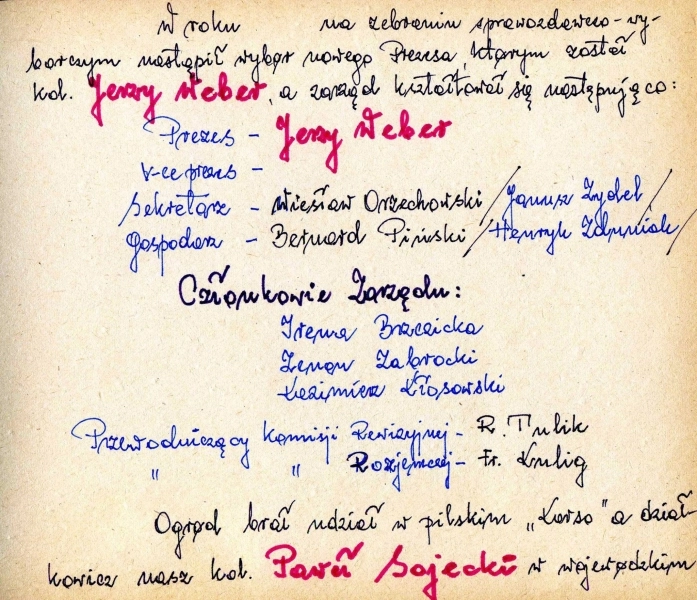 W roku na zebraniu sprawozdawczo-wy-
borczym nastąpił wybór nowego Prezesa, którym został
kol. Jerzy Weber, a zarząd kształtował się następująco:
Prezes - Jerzy Weber
V-ce prezes -
Sekretarz - Wiesław Orzechowski /Janusz Zydel/
Gospodarz - Bernard Piński /Henryk Zduniak/
Członkowie Zarządu:
Irena Brzezicka
Zenon Zabrocki
Kazimierz Kłosowski
Przewodniczący Komisji Rewizyjnej - R. Tulik
" " Rozjemczej - Fr. Kulig
Ogród brał udział w pilskim „Korso" a dział-
kowicz nasz kol. Paweł Sojecki w wojewódzkim